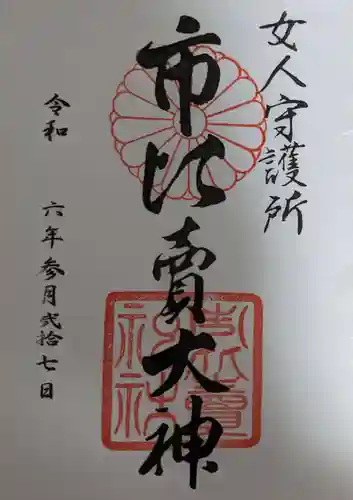 女人守護所
市比賣大神
市比賣神社
令和 六年参月弐拾七日